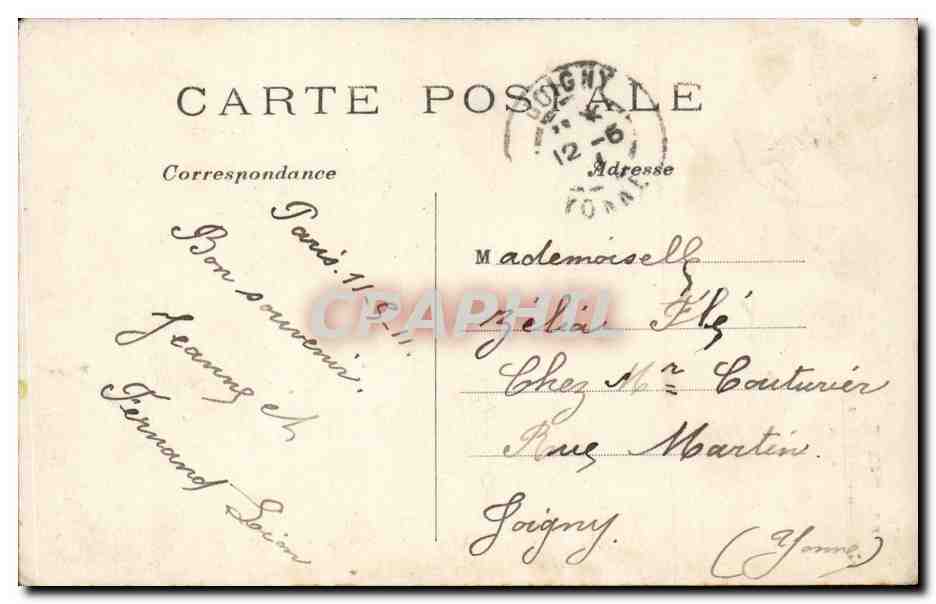 CARTE POSTALE
JOIGNY
12 -5
YONNE
Correspondance
Adresse
Paris. 11-5-11.
Bon souvenir.
Jeanne et
Fernand
Mademoiselle
Zélia Flé
Chez Mr Couturier
Rue Martin.
Joigny.
(Yonne)
CPAPHIL